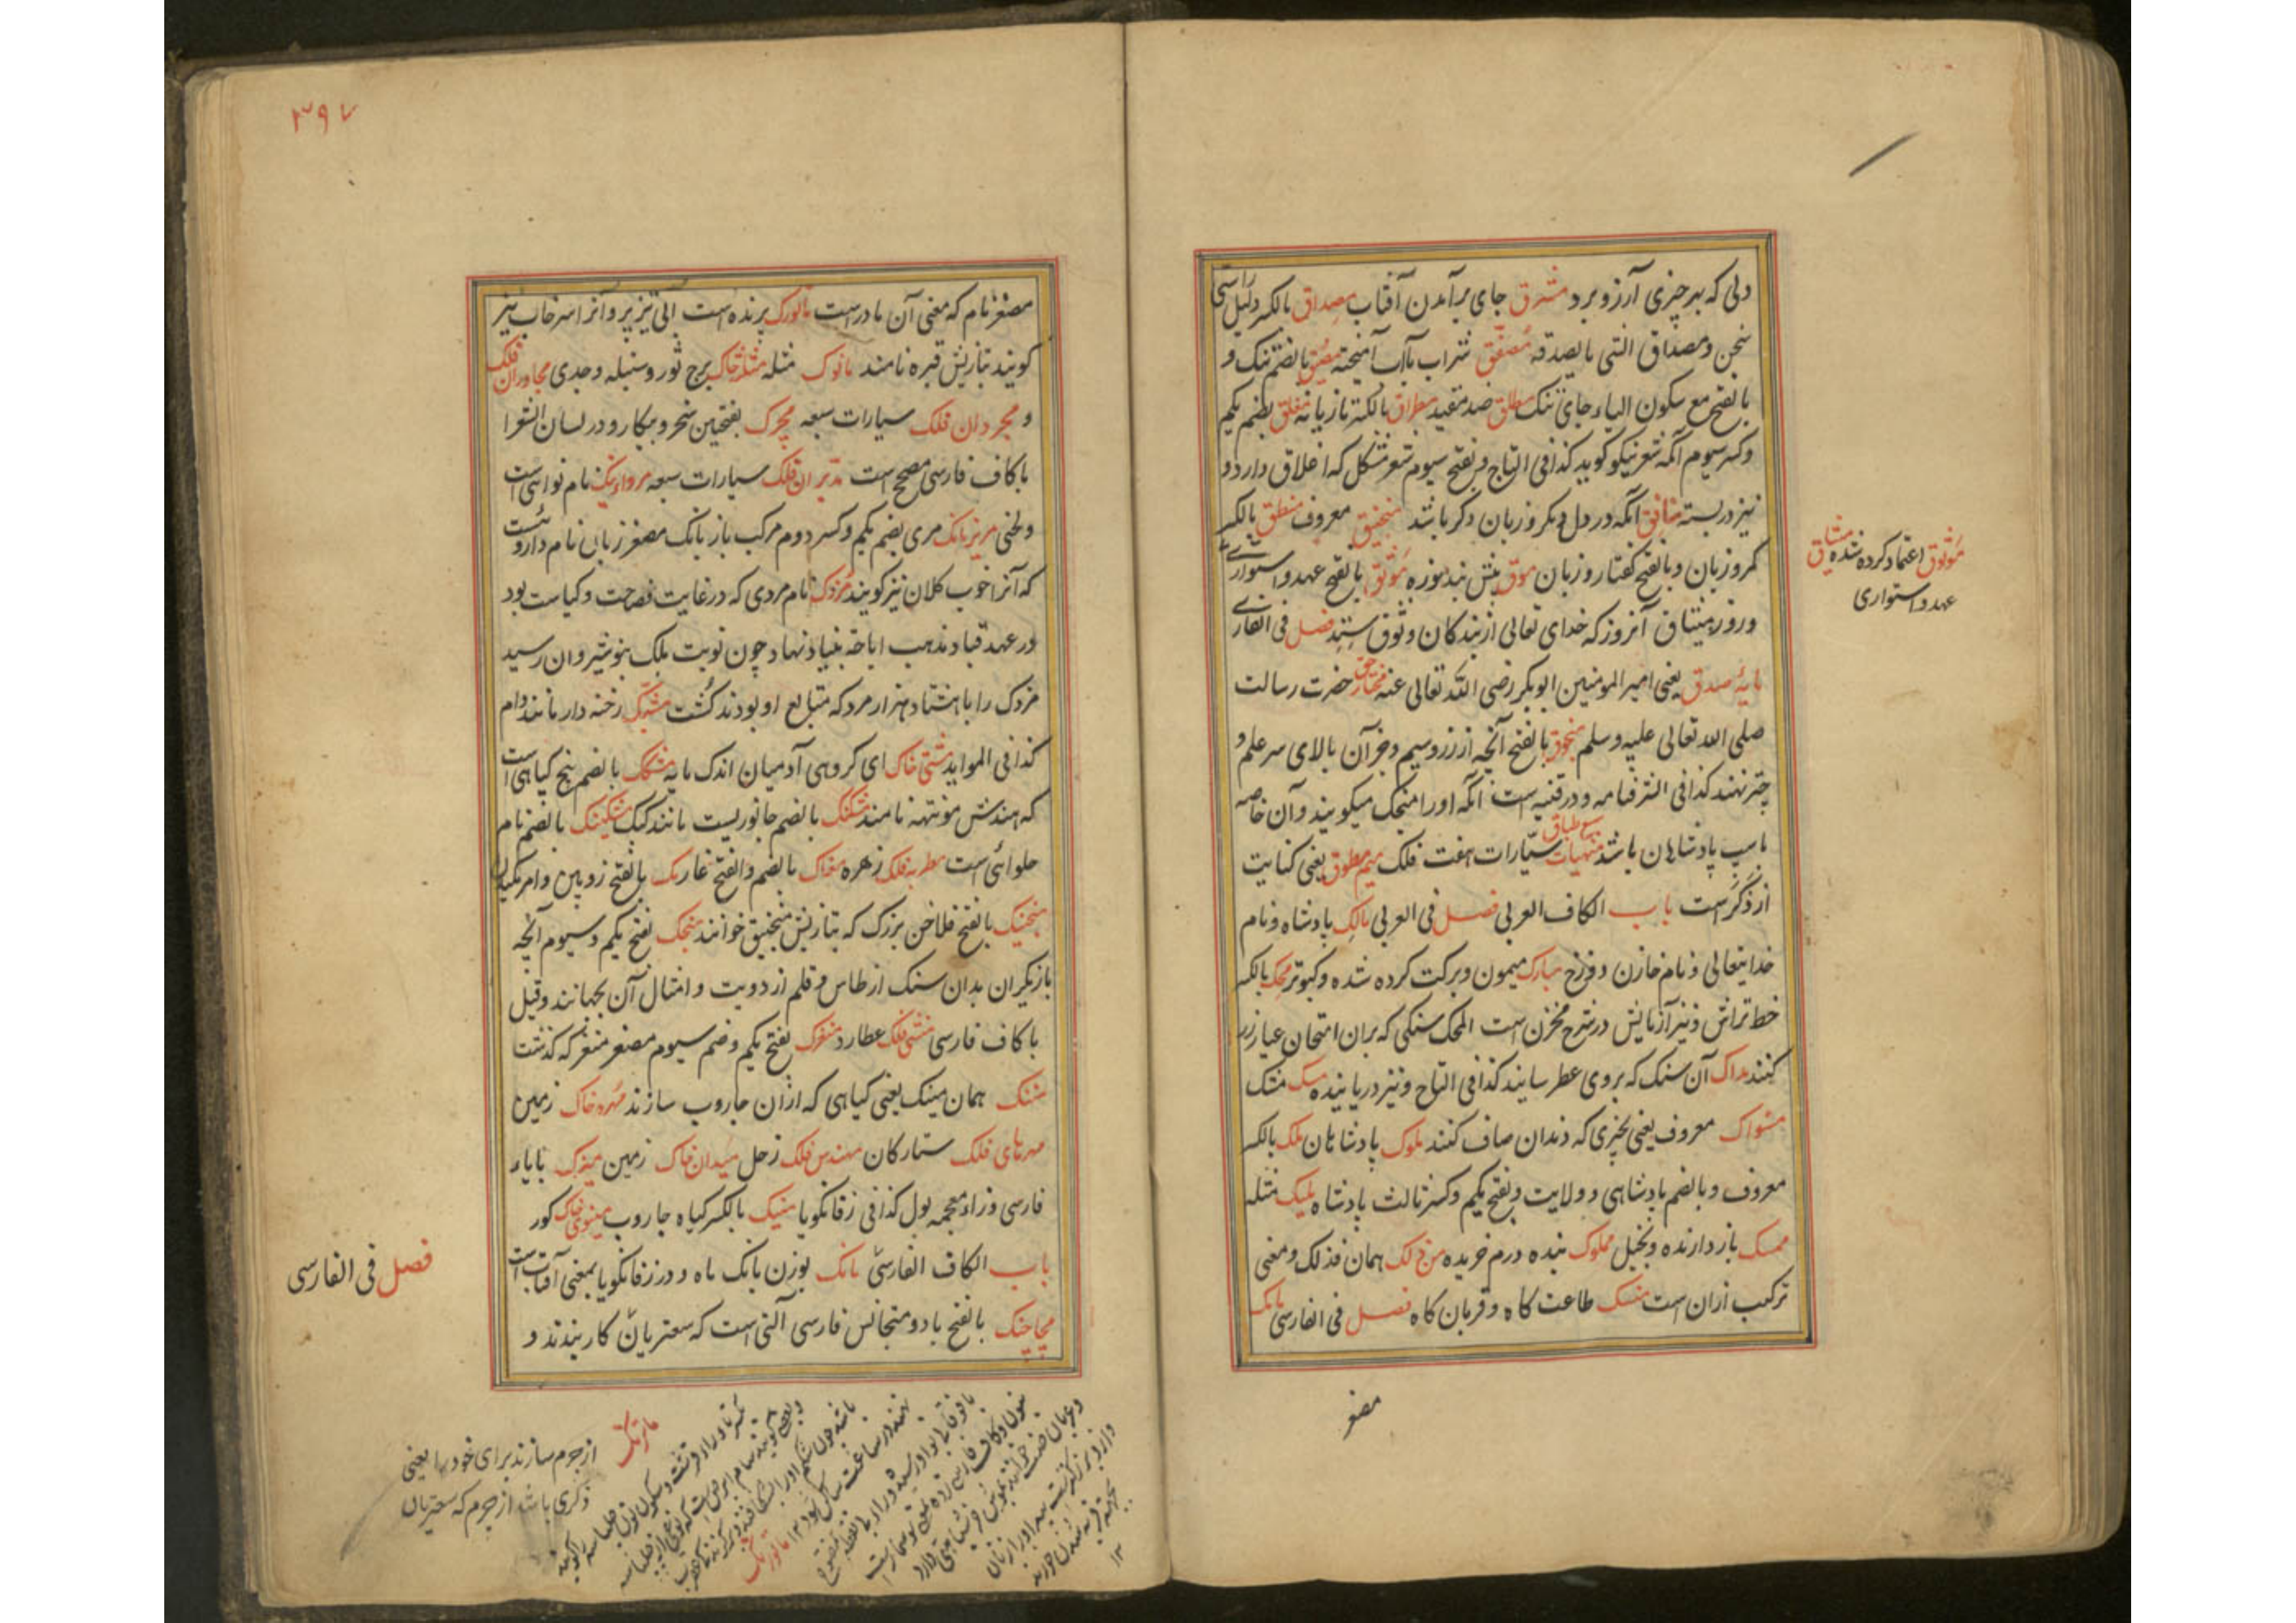 دلی که بهر چیزی آرزو برد مشرق جای برآمدن آفتاب مصداق بالکسر دلیل راستی
سخن ومصداق التی بالصدقه مصفق شراب بآب آمیخته مضیق بالضم تنک و
بالفتح مع سکون الیاء جای تنک مطلق ضد مقید مطراق بالکسر تازیانه مغلق بضم یکم
وکسر سیوم آنکه شعر نیکو کوید کذا فی التاج وبفتح سیوم شعر مشکل که اغلاق دارد و
نیز دربسته منافق آنکه در دل دیکر و زبان دکر باشد منجنیق معروف منطق بالکسر
کمر وزبان وبالفتح کفتار وزبان موق بنش بند موزه موثق بالفتح عهد واستواری
وروز میثاق آنروز که خدای تعالی از بندکان وثوق ستد فصل فی الفارسی
مایهٔ صدق یعنی امیر المومنین ابوبکر رضی الله تعالی عنه مختار حق حضرت رسالت
صلی الله تعالی علیه وسلم منجوق بالفتح آنچه از زر وسیم وجز آن بالای سر علم و
چتر نهند کذا فی الشرفنامه ودر قنیه است آنکه اورا منجک میکویند وآن خاصه
باسپ پادشاهان باشد منهیات سبع طباق سیارات هفت فلک میم مطوق یعنی کنایت
از ذکر است باب الکاف العربی فصل فی العربی مالک پادشاه ونام
خدایتعالی ونام خازن دوزخ مبارک میمون وبرکت کرده شده وکبوتر محک بالکسر
خط تراش ونیز آزمایش در شرح مخزن است المحک سنکی که بران امتحان عیار زر
کنند مداک آن سنک که بروی عطر سایند کذا فی التاج ونیز دریابنده مسک مشک
مسواک معروف یعنی چیزی که دندان صاف کنند ملوک پادشاهان ملک بالکسر
معروف وبالضم پادشاهی وولایت وبفتح یکم وکسر ثالث پادشاه ملیک مثله
ممسک باز دارنده وبخیل مملوک بنده درم خریده من ذلک همان فذلک ومعنی
ترکیب ازان است منسک طاعت کاه وقربان کاه فصل فی الفارسی مامک
موثوق اعتماد کرده شده میثاق
عهد واستواری
مصغر
٣٩٧
مصغر مام که معنی آن مادر است مالورک پرنده است آبی تیز پر وآنرا سرخاب نیز
کویند بتازیش قبره نامند مانوک مثله مثلثه خاک برج ثور وسنبله وجدی مجاوران فلک
و مجردان فلک سیارات سبعه مچرک بفتحین سخر وبیکار ودر لسان الشعرا
باکاف فارسی مصحح است مدبران فلک سیارات سبعه مرواءنیک نام نوائی است
ولحنی مریزبانک مری بضم یکم وکسر دوم مرکب باز بانک مصغر زبان نام داروئست
که آنرا خوب کلان نیز کویند مزدک نام مردی که در غایت فصاحت وکیاست بود
در عهد قباد مذهب اباحه بنیاد نهاد چون نوبت ملک بنوشیروان رسید
مزدک را باهشتاد هزار مرد که متابع او بودند کشت مشبک رخنه دار مانند دام
کذا فی المواید مشتی خاک ای کروهی آدمیان اندک مایه مشکک بالضم بیخ کیاهی است
که هندش موتهه نامند مشکنک بالضم جانوریست مانند کبک مشکینک بالضم نام
حلوائی است مطربه فلک زهره مغاک بالضم والفتح غار مک بالفتح زوبین وامر مکیدن
منجنیک بالفتح فلاخن بزرک که بتازیش منجنیق خوانند منجک بفتح یکم وسیوم آنچه
بازیکران بدان سنک از طاس وقلم از دویت وامثال آن بجهانند وقیل
باکاف فارسی منشی فلک عطارد منغرک بفتح یکم وضم سیوم مصغر منغر که کذشت
مننک همان مینک یعنی کیاهی که ازان جاروب سازند مهره خاک زمین
مهرهای فلک ستارکان مهندس فلک زحل میدان خاک زمین میزک بایاء
فارسی وزاء معجمه بول کذا فی زفانکویا مینک بالکسر کیاه جاروب مینوی خاک کور
باب الکاف الفارسی مانک بوزن بانک ماه ودر زفانکویا بمعنی آفتاب است
مچاچنک بالفتح بادو متجانس فارسی آلتی است که سعتریان کار بندند و
فصل فی الفارسی
از چرم سازند برای خود را یعنی
ذکری باشد از چرم که سعتریان